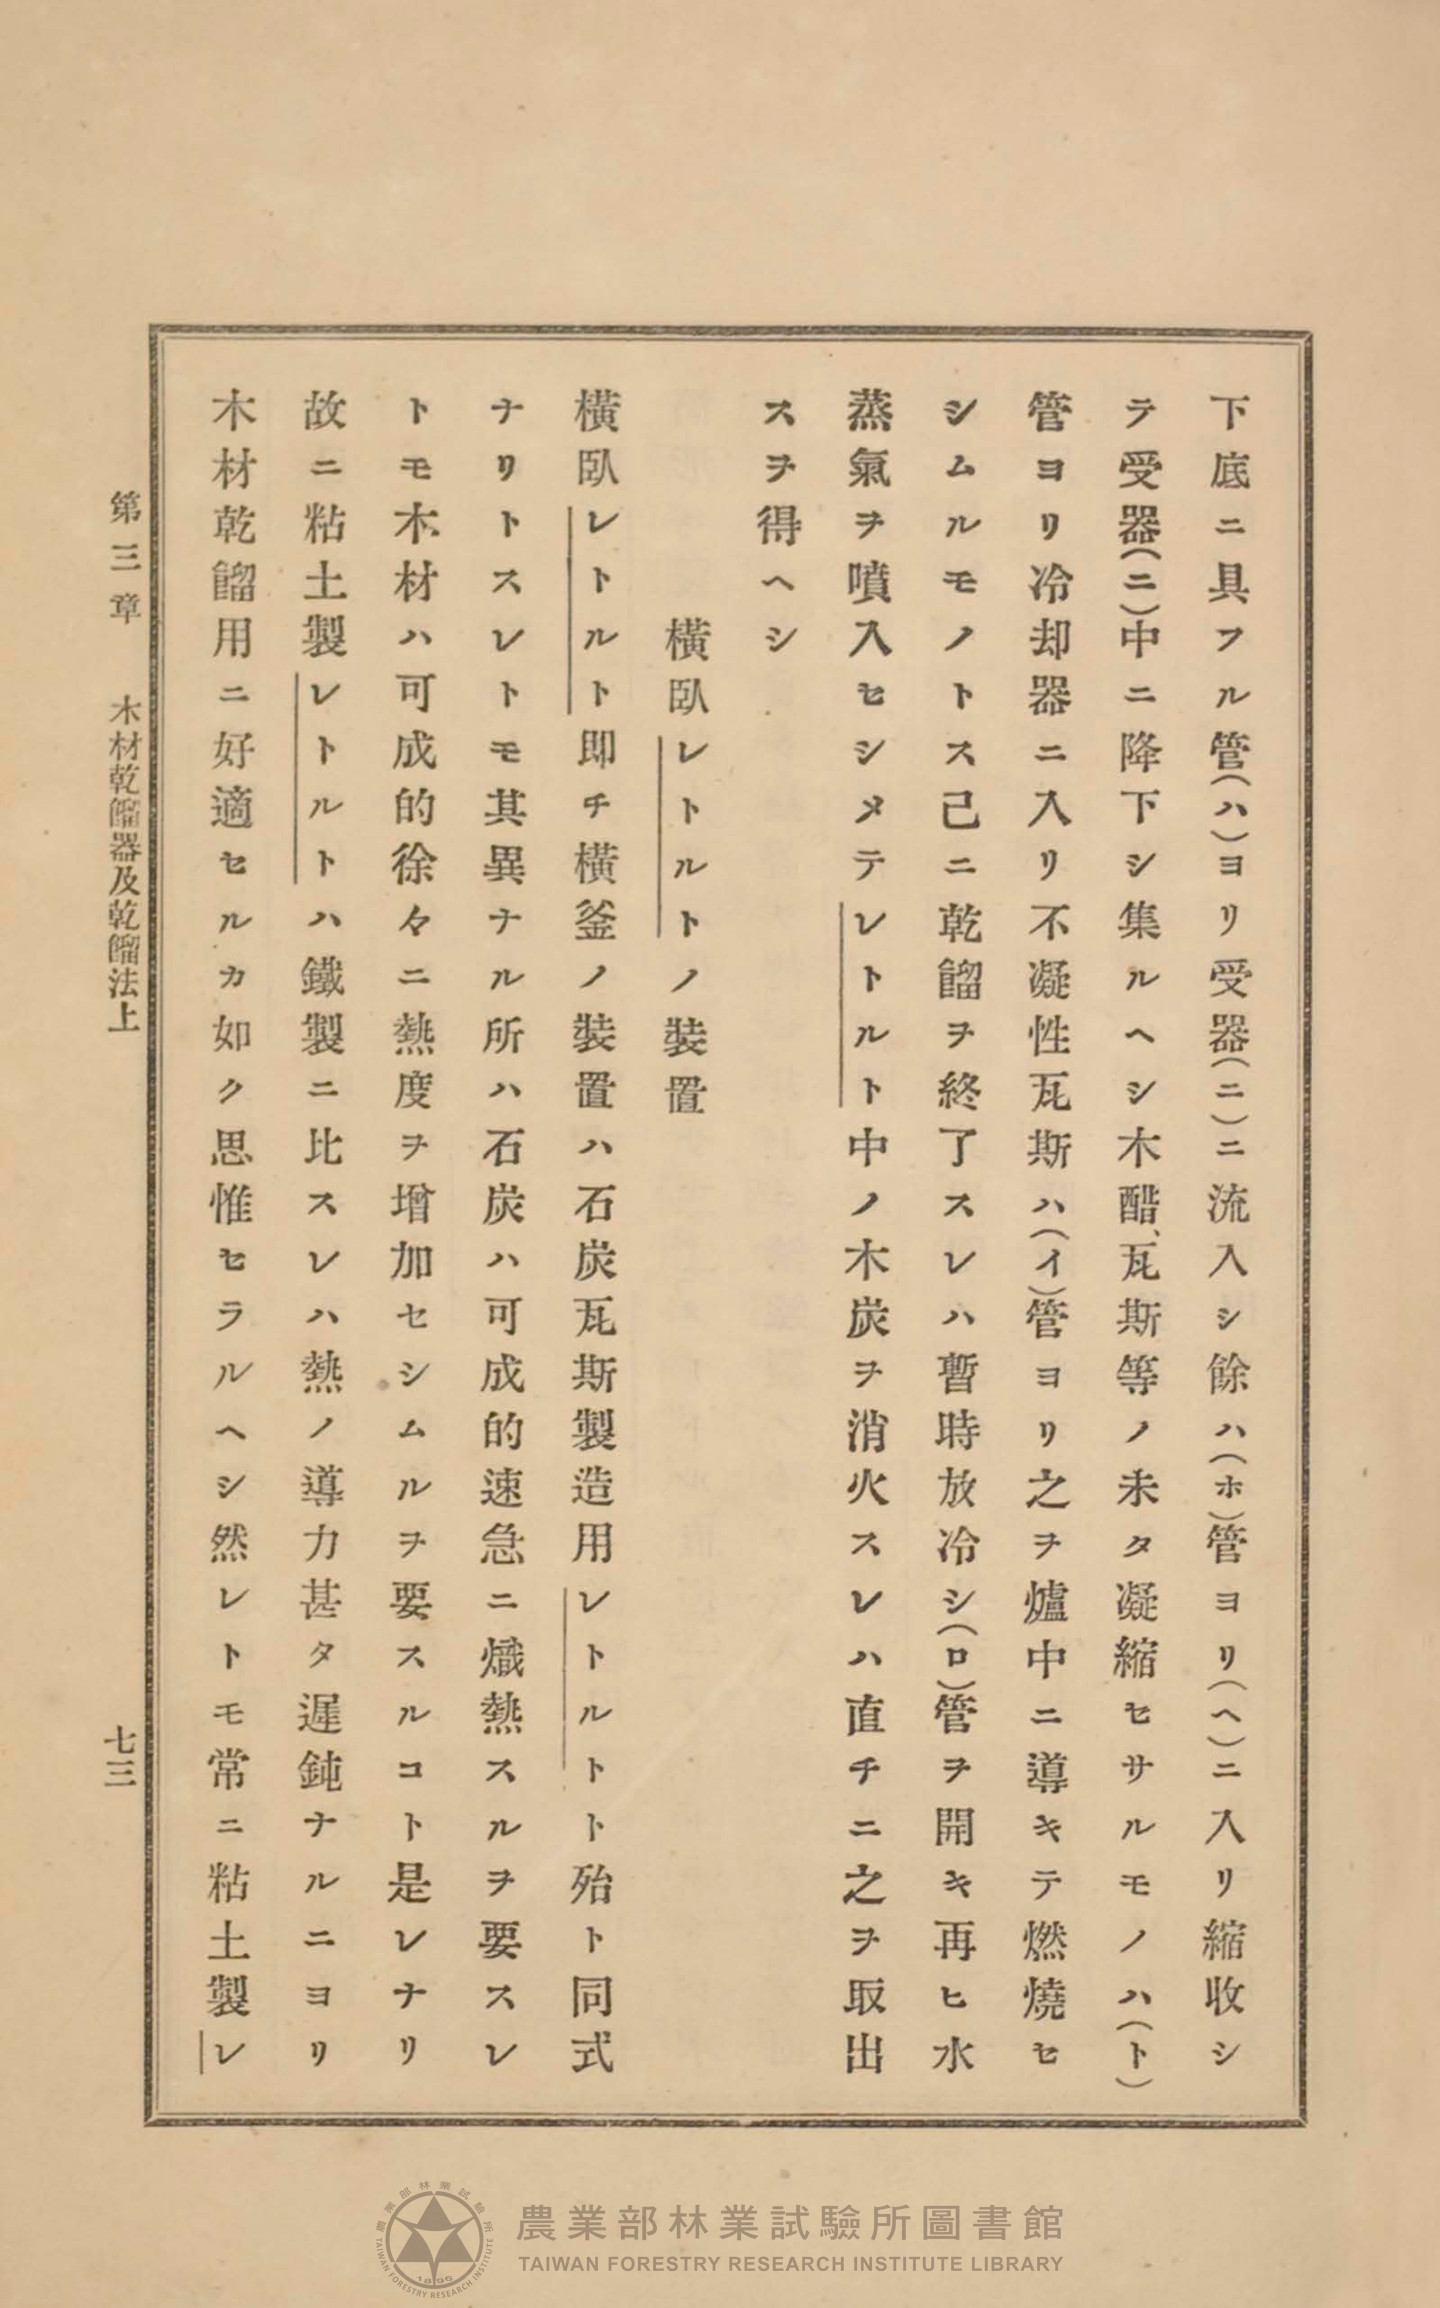 下底ニ具フル管(ハ)ヨリ受器(ニ)ニ流入シ餘ハ(ホ)管ヨリ(ヘ)ニ入リ縮收シ
テ受器(ニ)中ニ降下シ集ルヘシ木醋、瓦斯等ノ未タ凝縮セサルモノハ(ト)
管ヨリ冷却器ニ入リ不凝性瓦斯ハ(イ)管ヨリ之ヲ爐中ニ導キテ燃燒セ
シムルモノトス已ニ乾餾ヲ終了スレハ暫時放冷シ(ロ)管ヲ開キ再ヒ水
蒸氣ヲ噴入セシメテレトルト中ノ木炭ヲ消火スレハ直チニ之ヲ取出
スヲ得ヘシ
橫臥レトルトノ裝置
橫臥レトルト即チ橫釜ノ裝置ハ石炭瓦斯製造用レトルトト殆ト同式
ナリトスレトモ其異ナル所ハ石炭ハ可成的速急ニ熾熱スルヲ要スレ
トモ木材ハ可成的徐々ニ熱度ヲ增加セシムルヲ要スルコト是レナリ
故ニ粘土製レトルトハ鐵製ニ比スレハ熱ノ導力甚タ遲鈍ナルニヨリ
木材乾餾用ニ好適セルカ如ク思惟セラルヘシ然レトモ常ニ粘土製レ
第三章 木材乾餾器及乾餾法上 七三
農業部林業試驗所圖書館
TAIWAN FORESTRY RESEARCH INSTITUTE LIBRARY
農業部林業試驗所
TAIWAN FORESTRY RESEARCH INSTITUTE
1896